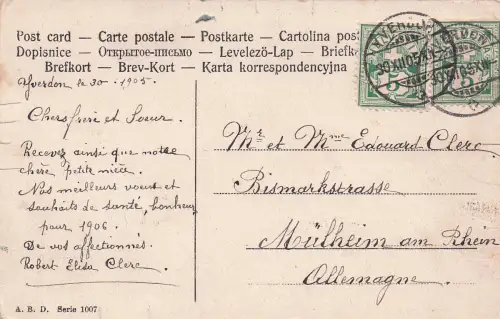 Post card — Carte postale — Postkarte — Cartolina post
Dopisnice — Открытое-письмо — Levelezö-Lap — Briefk
Brefkort — Brev-Kort — Karta korrespondencyjna
Yverdon le 30 - 1905
Chers frère et Soeur.
Recevez ainsi que notre
chère petite nièce.
Nos meilleurs voeux et
souhaits de santé, bonheur
pour 1906.
De vos affectionnés.
Robert Elisa Clerc
Mr et Mme Edouard Clerc
Bismarkstrasse
Mülheim am Rhein
Allemagne.
30.XII.05
5
A. B. D. Serie 1007